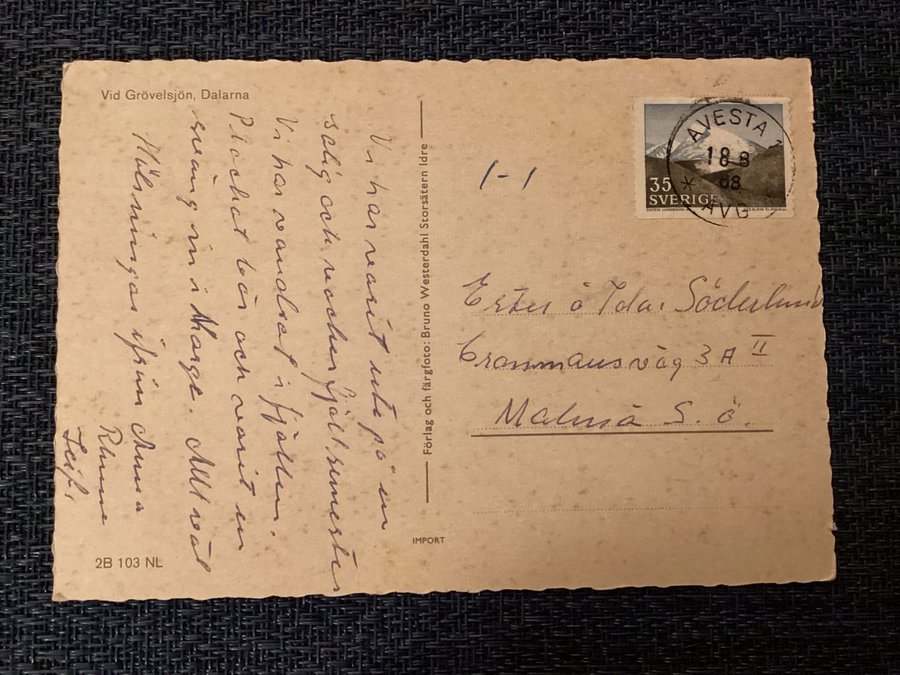 Vid Grövelsjön, Dalarna
Vi har varit ute på en
solig och vacker fjällsemester
Vi har vandrat i fjällen.
Plockat bär och varit en
sväng in i Norge. Allt väl
Hälsningar ifrån Anna
Rune
Leif.
2B 103 NL
Förlag och färgfoto: Bruno Westerdahl Storsätern Idre
IMPORT
1-1
AVESTA 1
18 8
68
AVG
35
SVERIGE
Ester o Ida Söderlund
väg 3 A II
Malmö S. ö.